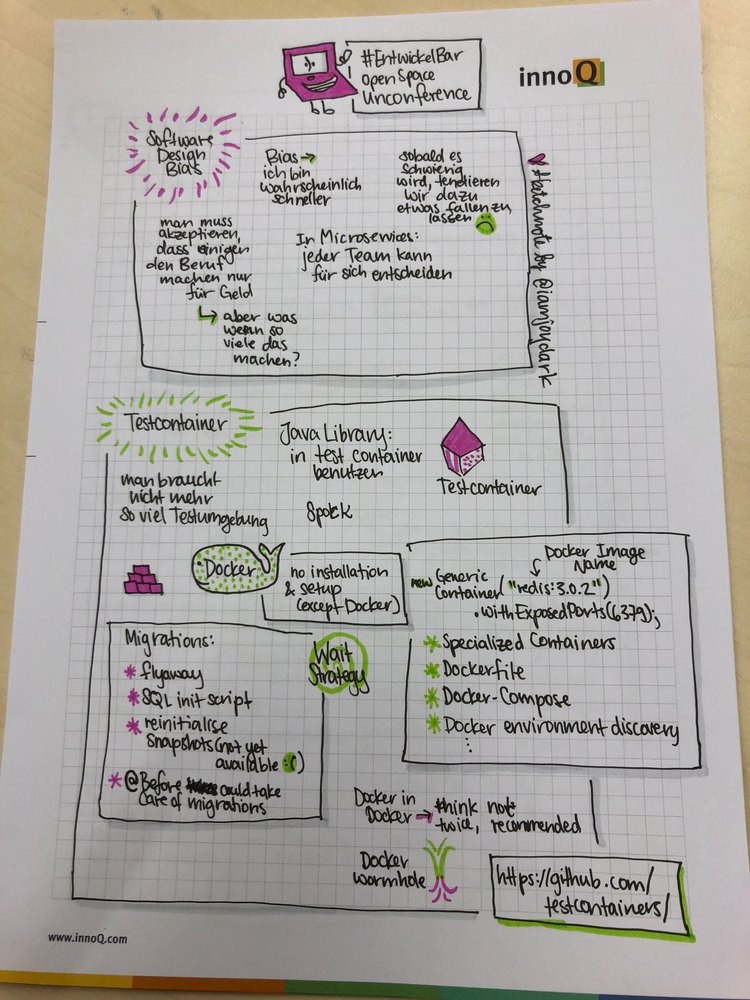 #EntwickelBar
openSpace
Unconference
innoQ
Software
Design
Bias
Bias →
ich bin
wahrscheinlich
schneller
sobald es
schwierig
wird, tendieren
wir dazu
etwas fallen zu
lassen
man muss
akzeptieren,
dass einigen
den Beruf
machen nur
für Geld
↳ aber was
wenn so
viele das
machen?
In Microservices:
jeder Team kann
für sich entscheiden
by @iamjoydark
Testcontainer
Java Library:
in test container
benutzen
Testcontainer
man braucht
nicht mehr
so viel Testumgebung
Spock
Docker
no installation
& setup
(except Docker)
Docker Image
Name
new Generic
Container("redis:3.0.2")
.withExposedPorts(6379);
* Specialized Containers
* Dockerfile
* Docker-Compose
* Docker environment discovery
⋮
Migrations:
* flyaway
* SQL init script
* reinitialise
snapshots (not yet
available :( )
* @Before could take
care of migrations
Wait
Strategy
Docker in
Docker → think not
twice, recommended
Docker
wormhole
https://github.com/
testcontainers/
www.innoQ.com